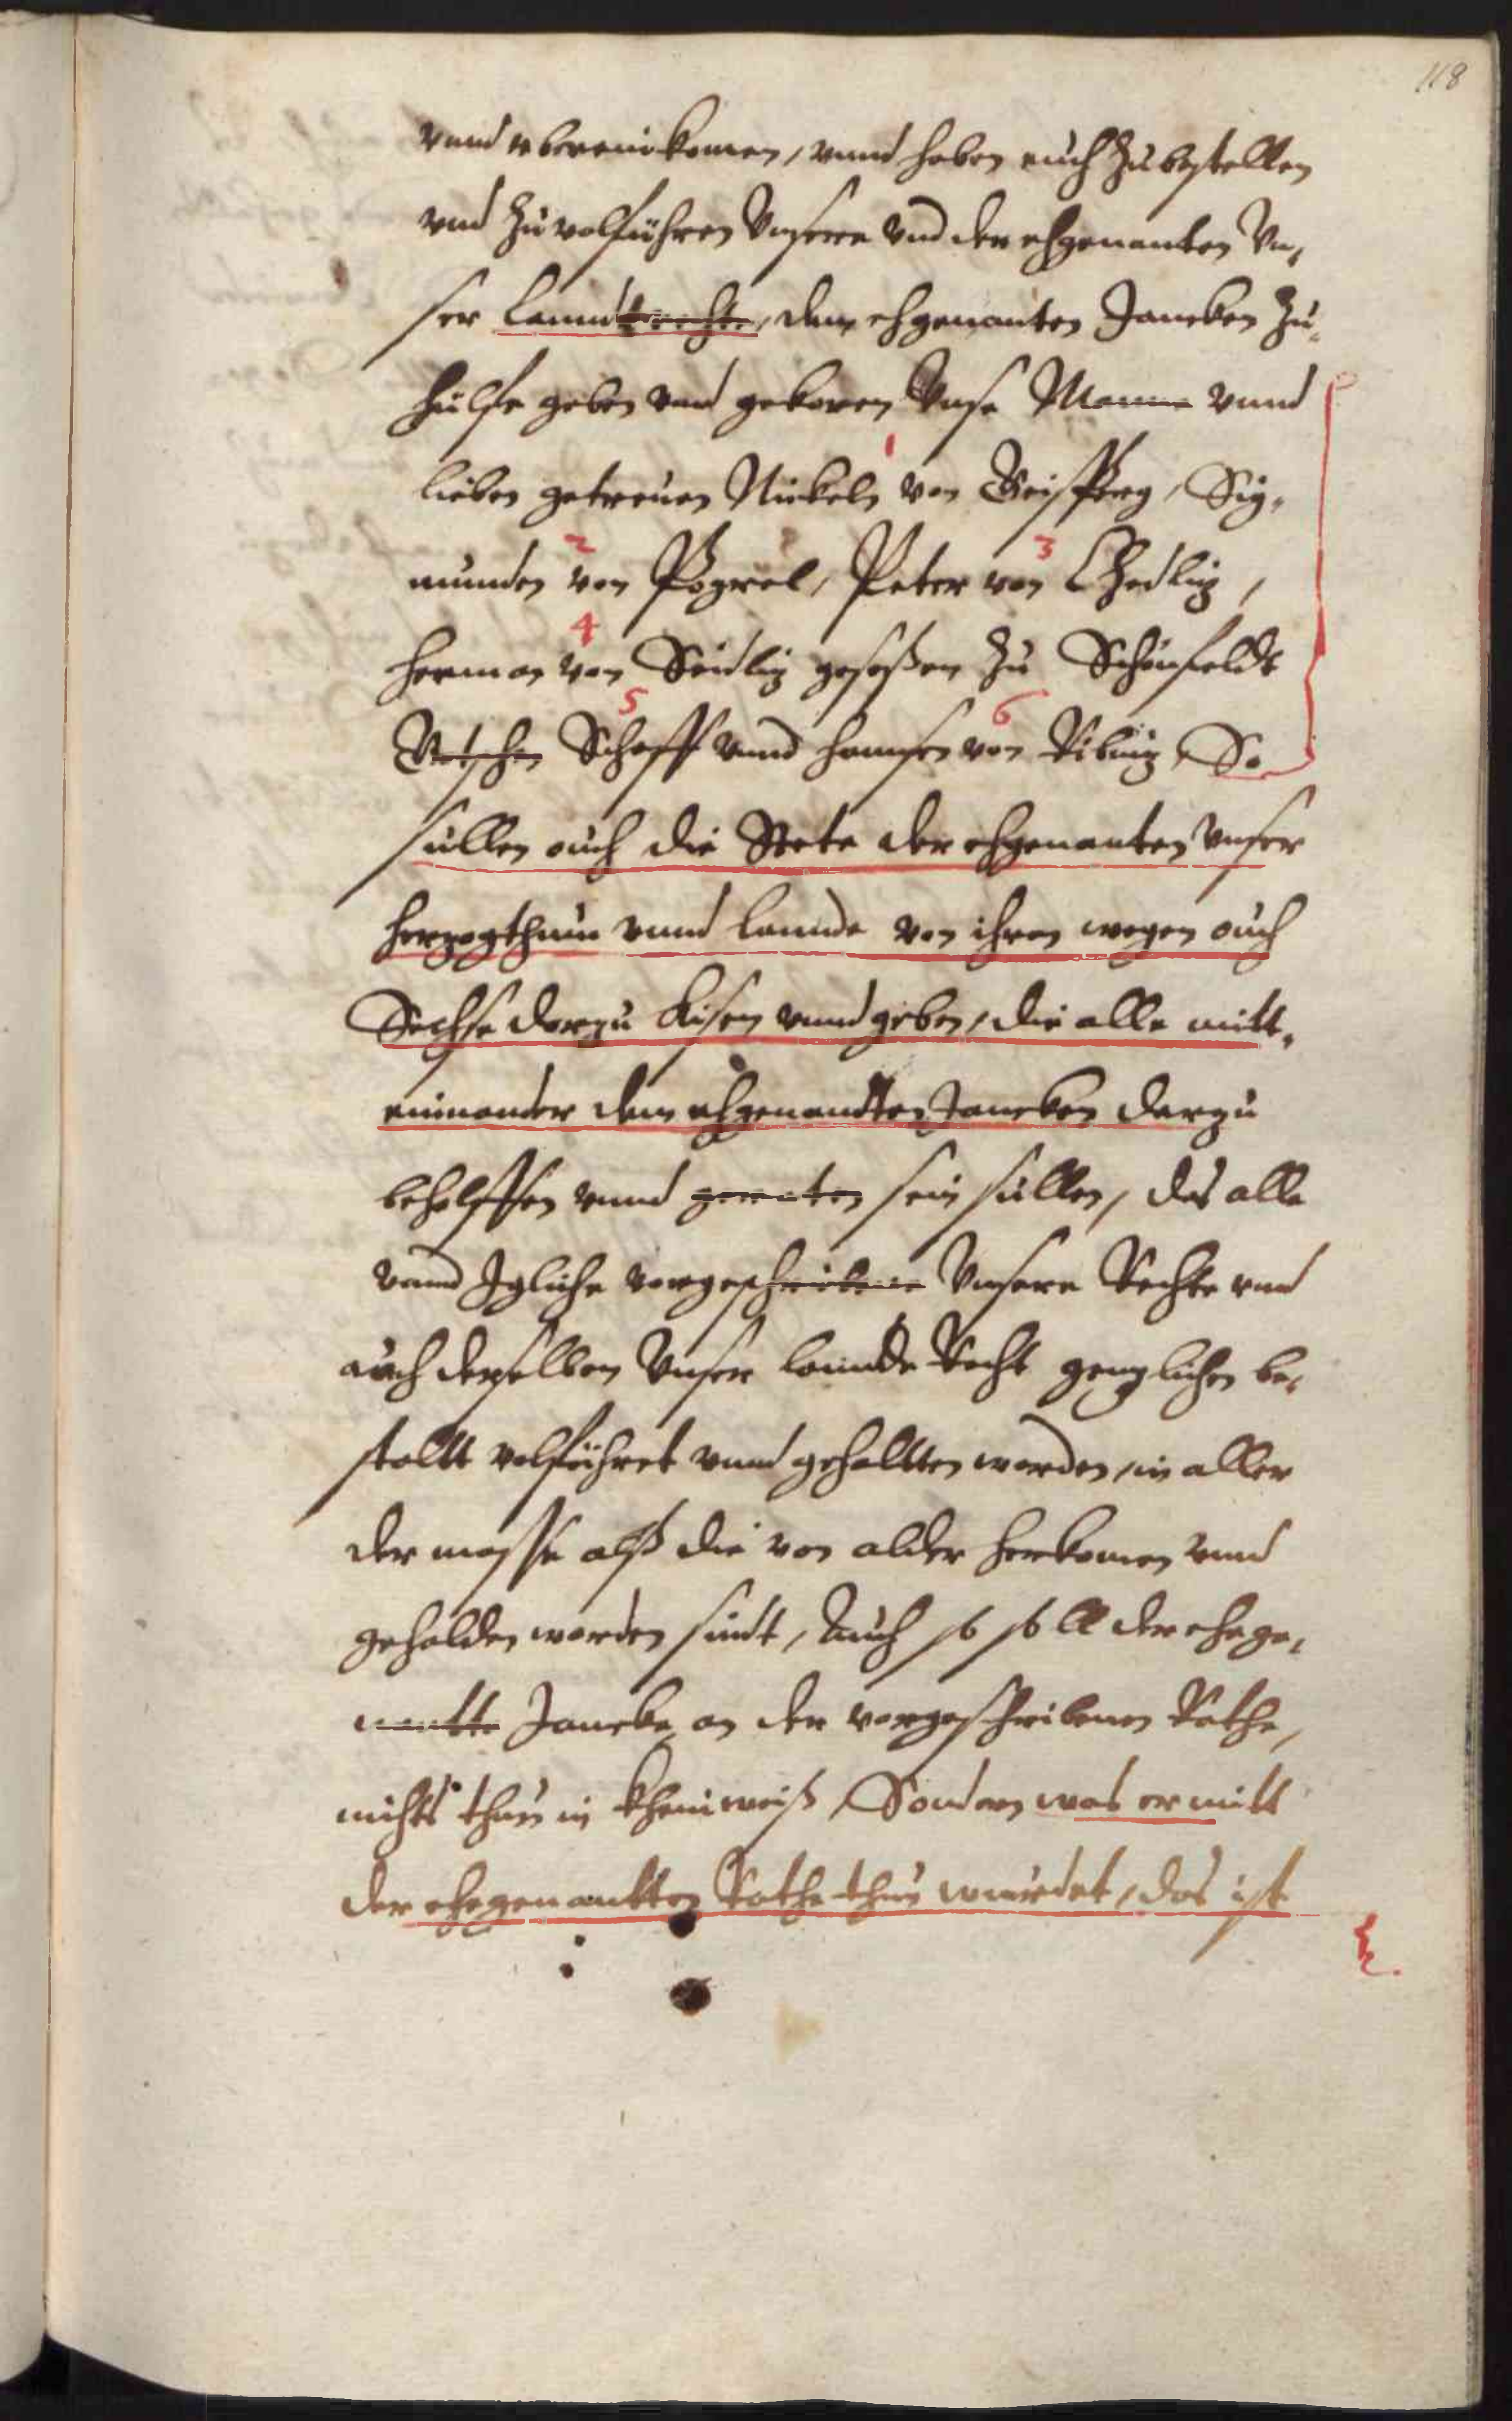 118
vnnd vberein komen, vnnd haben auch zubestellen
vnd zuvolführen Vnsere vnd der ehgenanten Vn,
ser Lanndtrechte, dem ehgenanten Jancken zu,
hülfe geben vnd gekoren Vnse Manne vnnd
1
lieben getreuen Nickeln von Zeiskberg, Sig,
2 3
munden von Pogrel, Peter von Czedlitz,
4
herman von Seidlitz gesessen zu Schönfeldt
5 6
Gotschen Schoff vnnd hansen von Ribnitz, So
sullen auch die Stete der ehgenanten Vnser
herzogthum vnnd Lannde von ihren wegen auch
Sechse darzu kisen vnnd geben, die alle mitt,
einander dem ehgenandten Jancken darzu
beholffen vnnd geraten sein sullen, das alle
vnnd Igliche vorgeschribene Vnsere Rechte vnd
auch derselben Vnser Lannde Recht genzlichen be,
stallt volführet vnnd gehallten werden, in aller
der masse alß die von alder herkomen vnnd
gehalden worden sindt, Auch so soll der ehege,
nantte Jancke an der vorgeschribenen Rathe,
nichts thun in kheinweiß, Sondern was er mitt
der ehegenantten Rathe thun wuerdet, das ist